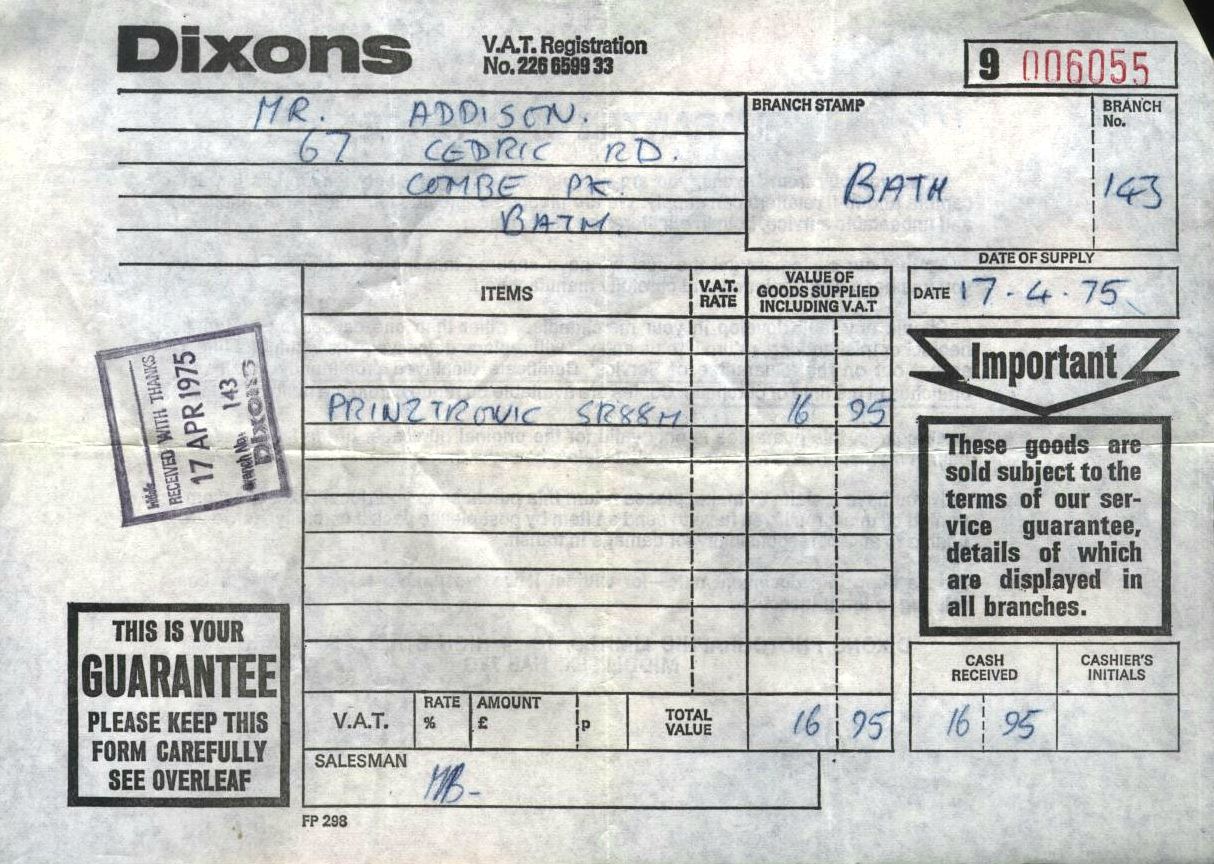 Dixons
V.A.T. Registration
No. 226 6599 33
9 006055
MR. ADDISON.
67 CEDRIC RD.
COMBE PK.
BATH.
BRANCH STAMP
BATH
BRANCH
No.
143
DATE OF SUPPLY
DATE 17 . 4 . 75
ITEMS
V.A.T.
RATE
VALUE OF
GOODS SUPPLIED
INCLUDING V.A.T
PRINZTRONIC SR88M 16 95
RECEIVED WITH THANKS
17 APR 1975
Branch No. 143
Dixons
Important
These goods are
sold subject to the
terms of our ser-
vice guarantee,
details of which
are displayed in
all branches.
THIS IS YOUR
GUARANTEE
PLEASE KEEP THIS
FORM CAREFULLY
SEE OVERLEAF
V.A.T.
RATE
%
AMOUNT
£ p
TOTAL
VALUE
16 95
CASH
RECEIVED
16 95
CASHIER'S
INITIALS
SALESMAN
MB-
FP 298